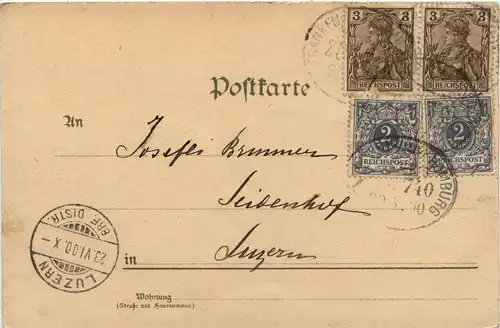 3 3
REICHSPOST REICHSPOST
2 2
REICHSPOST REICHSPOST
FRANKFU
740
Postkarte
An
Josefli Brunner
Seidenhof
Luzern
in
LUZERN
BRF. DISTR.
23.VI.00.X
Wohnung
(Straße und Hausnummer)